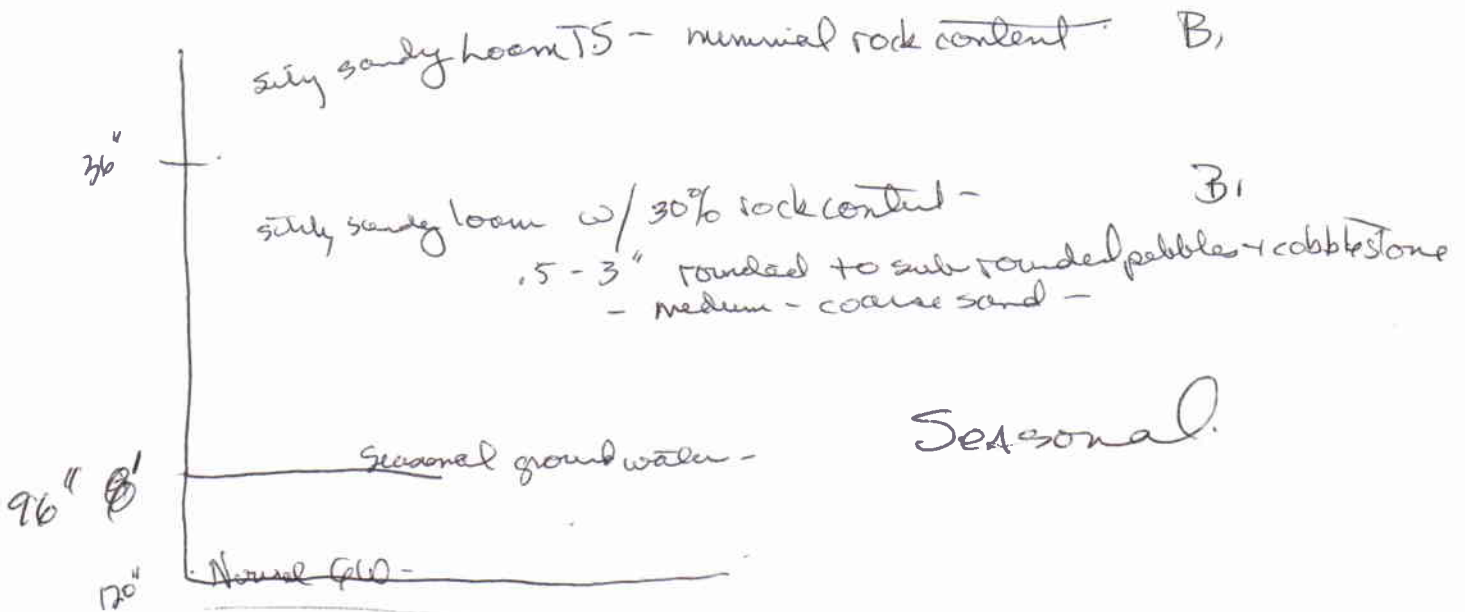 silty sandy Loam T.S - minimial rock content B1
36"
silty sandy loam w/ 30% rock content - B1
.5 - 3" rounded to sub rounded pebbles + cobblestone
- medium - coarse sand -
Seasonal
Seasonal ground water -
96" 8'
Normal GW -
120"